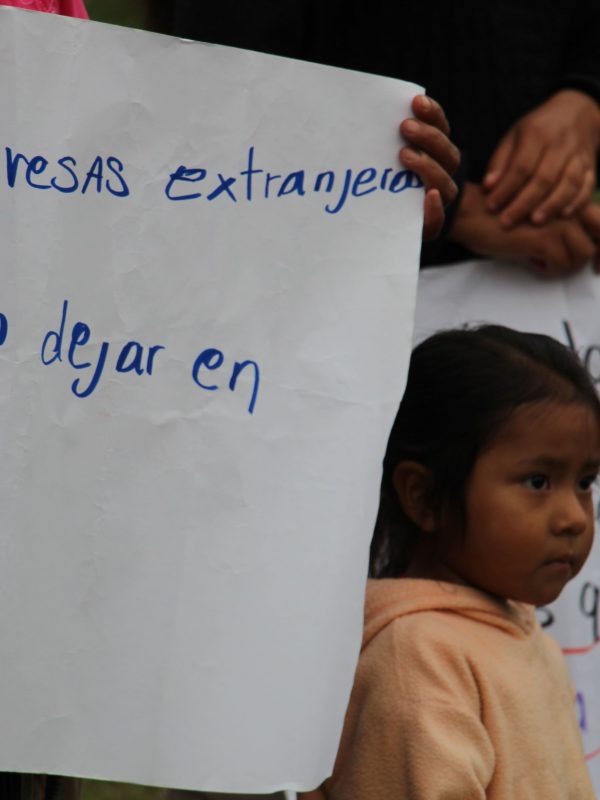 resas extranjeras
dejar en